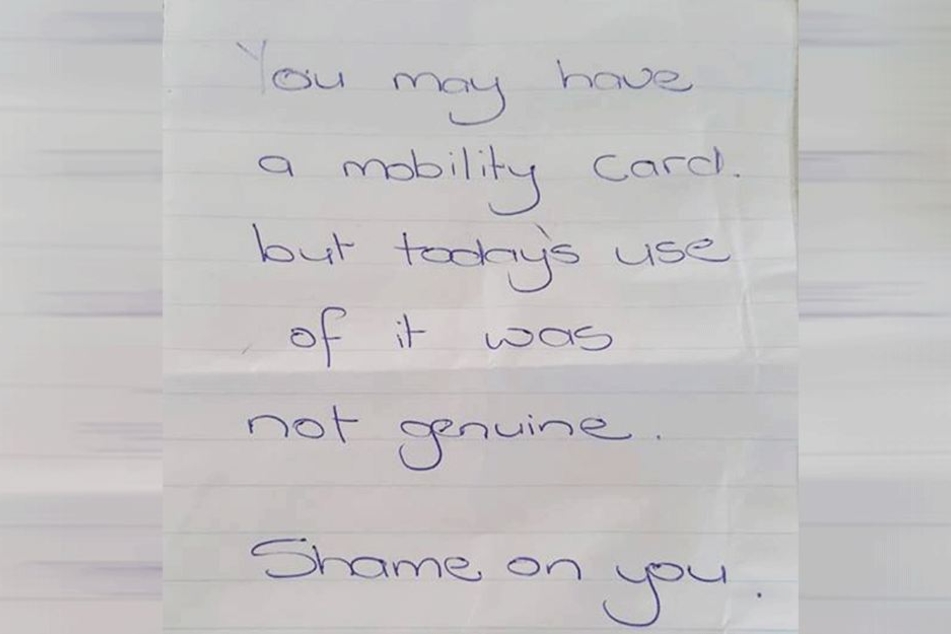 You may have
a mobility card.
but today's use
of it was
not genuine.
Shame on you.